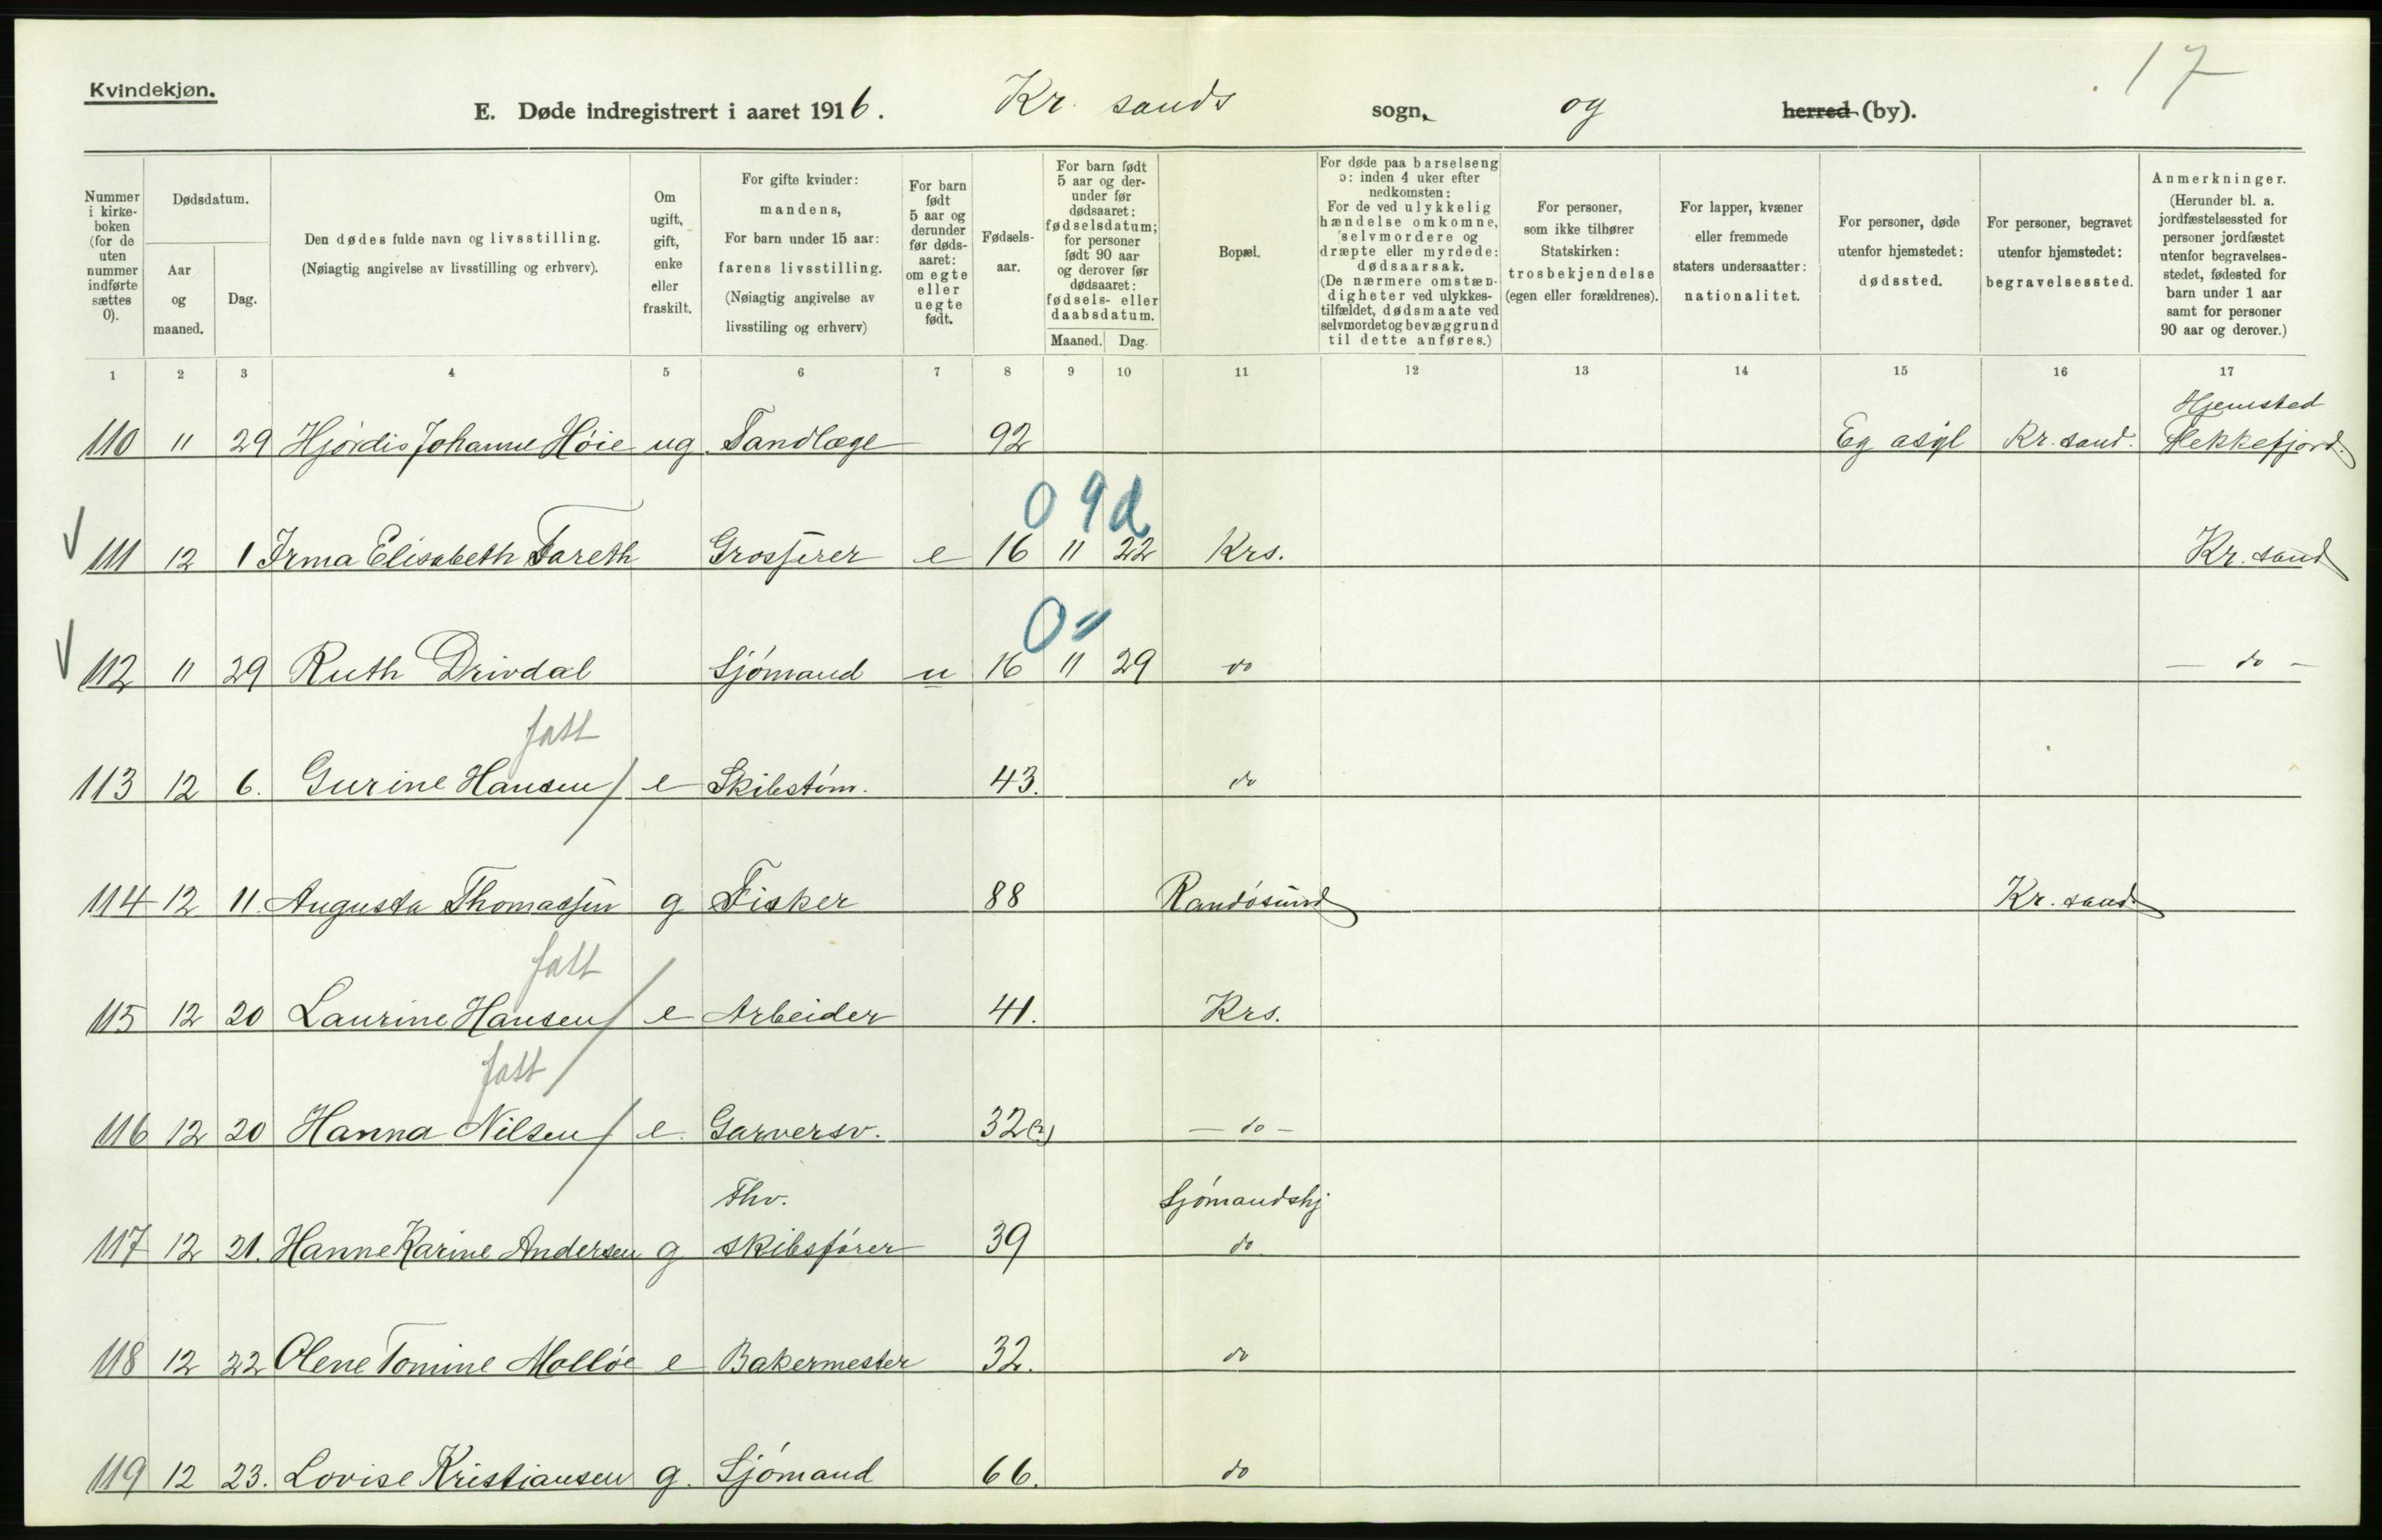 17
Kvindekjøn.
E. Døde indregistrert i aaret 1916. Kr. sands sogn, og herred (by).
Nummer i kirke-boken (for de uten nummer indførte sættes 0).
Dødsdatum.
Aar og maaned.
Dag.
Den dødes fulde navn og livsstilling.
(Nøiagtig angivelse av livsstilling og erhverv).
Om ugift, gift, enke eller fraskilt.
For gifte kvinder: mandens,
For barn under 15 aar: farens livsstilling.
(Nøiagtig angivelse av livsstiling og erhverv)
For barn født 5 aar og derunder før døds-aaret: om egte eller uegte født.
Fødsels-aar.
For barn født 5 aar og der-under før dødsaaret: fødselsdatum; for personer født 90 aar og derover før dødsaaret: fødsels- eller daabsdatum.
Maaned. Dag.
Bopæl.
For døde paa barselseng ɔ: inden 4 uker efter nedkomsten:
For de ved ulykkelig hændelse omkomne, selvmordere og dræpte eller myrdede: dødsaarsak.
(De nærmere omstæn-digheter ved ulykkes-tilfældet, dødsmaate ved selvmordet og bevæggrund til dette anføres.)
For personer, som ikke tilhører Statskirken: trosbekjendelse (egen eller forældrenes).
For lapper, kvæner eller fremmede staters undersaatter: nationalitet.
For personer, døde utenfor hjemstedet: dødssted.
For personer, begravet utenfor hjemstedet: begravelsessted.
Anmerkninger.
(Herunder bl. a. jordfæstelsessted for personer jordfæstet utenfor begravelses-stedet, fødested for barn under 1 aar samt for personer 90 aar og derover.)
1 2 3 4 5 6 7 8 9 10 11 12 13 14 15 16 17
Hjemsted
110 11 29 Hjørdis Johanne Høie ug. Tandlæge 92 Eg asyl Kr. sand. Flekkefjord.
0 9 d
111 12 1 Irma Elisabeth Fareth Grosserer e 16 11 22 Krs. Kr. sand
0 "
112 11 29 Ruth Drivdal Sjømand u 16 11 29 do — do —
fatt
113 12 6. Gurine Hansen e Skibstøm. 43. do
114 12 11. Augusta Thomassen g Fisker 88 Randøsund Kr. sand.
fatt
115 12 20 Laurine Hansen e Arbeider 41. Krs.
fatt
116 12 20 Hanna Nilsen e. Garversv. 32(?) — do —
Fhv. Sjømandshj
117 12 21. Hanne Karine Andersen g skibsfører 39 do
118 12 22 Olene Tomine Molløe e Bakermester 32. do
119 12 23. Lovise Kristiansen g. Sjømand 66. do